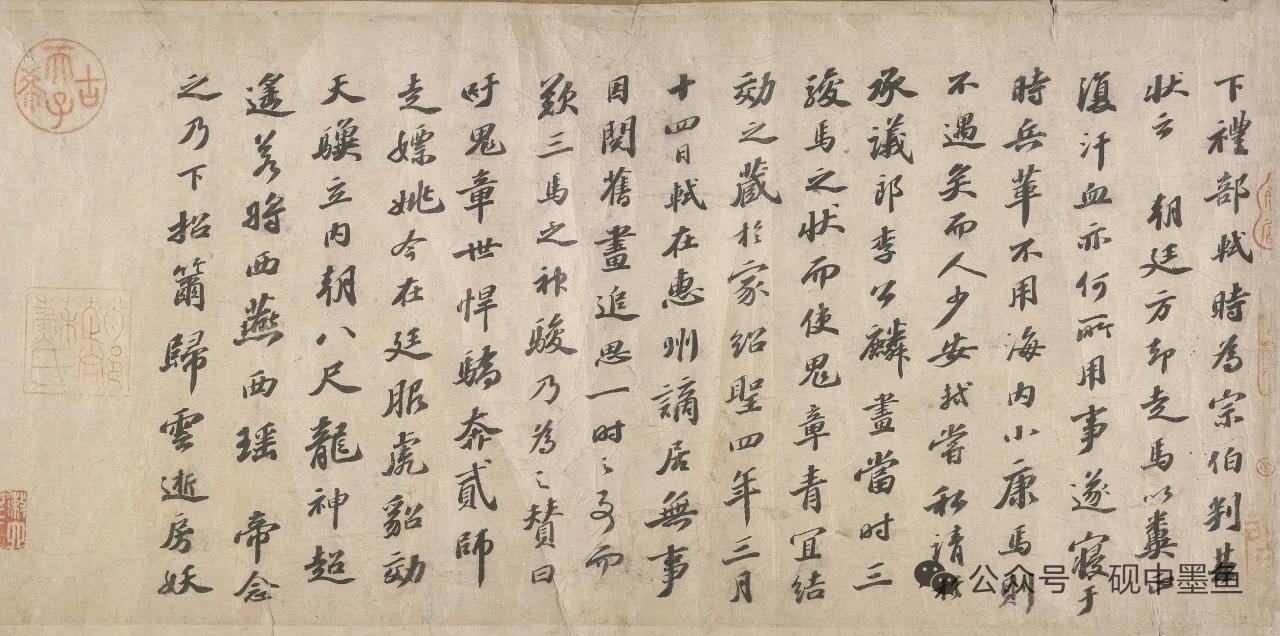 下禮部軾時為宗伯判其
狀云 朝廷方却走馬以糞正
復汗血亦何所用事遂寢于
時兵革不用海内小康馬則
不遇矣而人少安軾嘗私請於
承議郎李公麟畫當时三
駿馬之狀而使鬼章青冝結
効之藏於家紹聖四年三月
十四日軾在惠州謫居無事
因閱舊畫追思一时〻事而
歎三馬之神駿乃為〻贊曰
吁鬼章世悍驕奔貳師
走嫖姚今在廷服虎貂効
天驥立内朝八尺龍神超
遥若將西燕西瑶 帝念
之乃下招籋歸雲逝房妖
古稀天子
趙郡蘇氏
公众号·砚中墨鱼